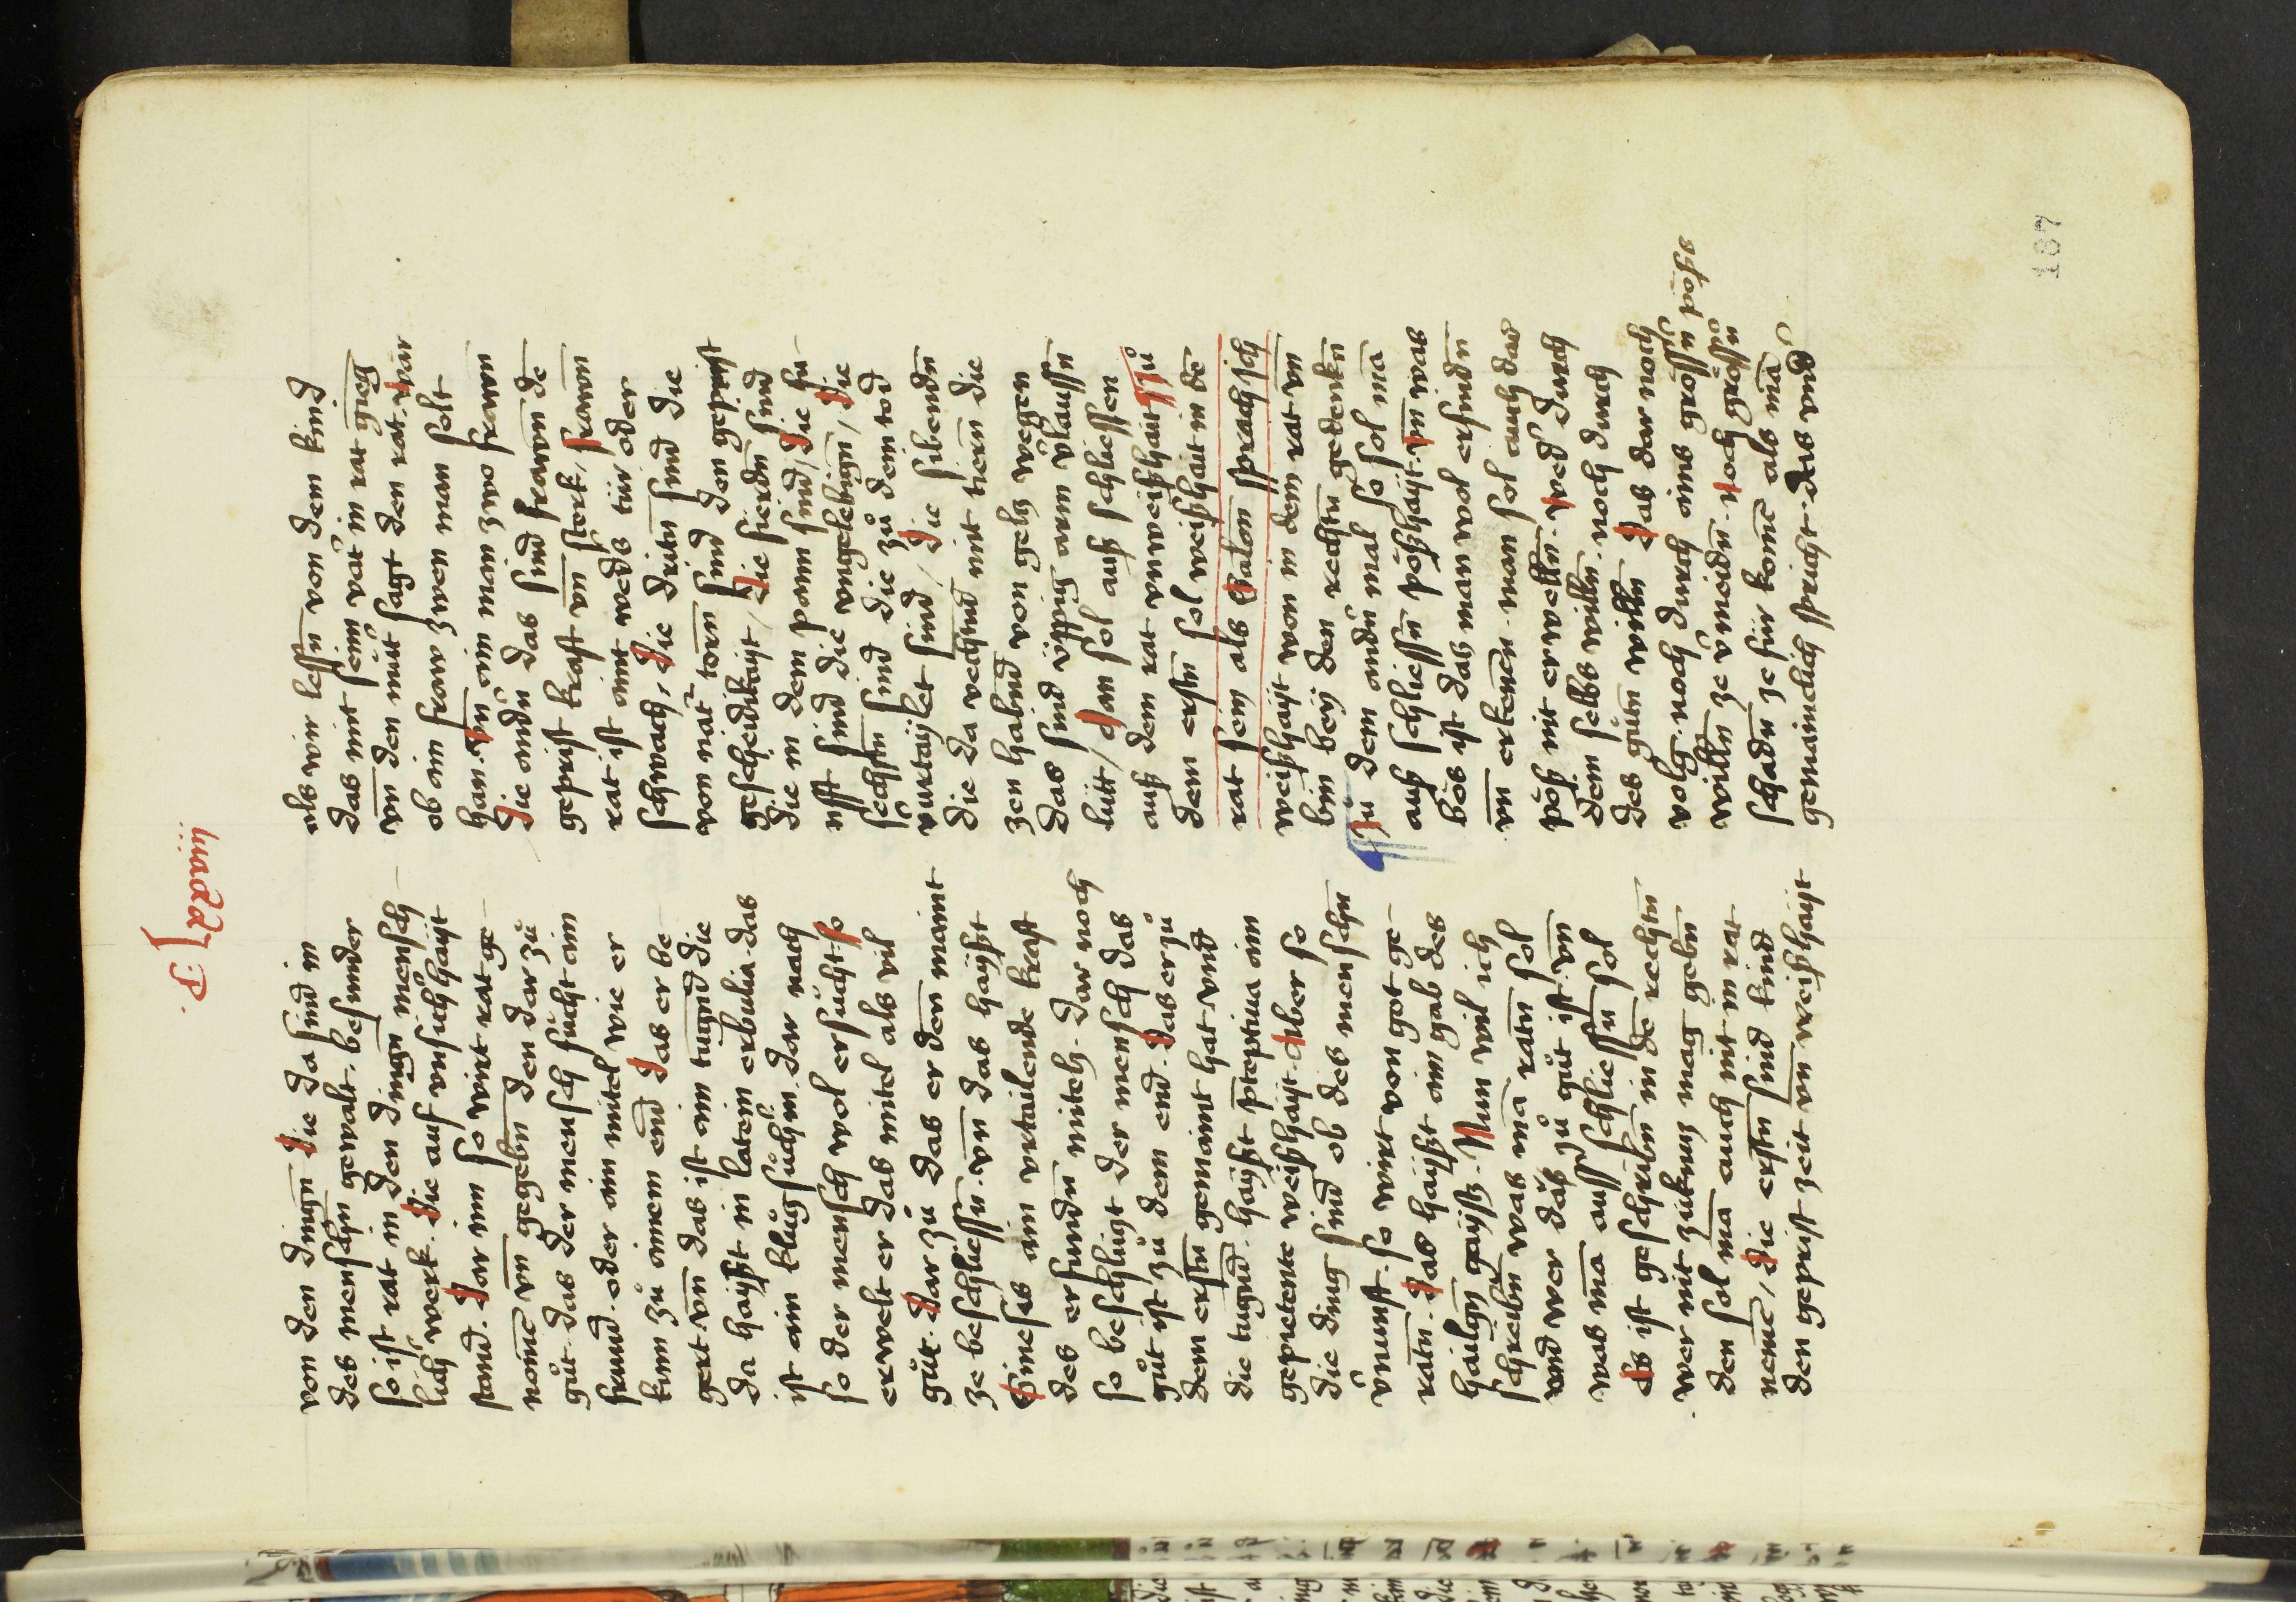 lxxxviij
von den dingñ die da sind in
des menschñ gewalt. besunder
so ist rat in den dingñ mensch
lich͛ werk. die auf vnsich͛ hayt
stand. dar inn so wirt rat ge
nom̄e vn̄ gegebn̄ den dar zů
gůt. das der mensch sůcht ain
frund. oder ain mitel wie er
kum zů ainem end das er be
gert. vn̄ das ist ain tugnd die
da hayßt in latein eubulia. das
ist ain klůg sůchn. dar nach
so der mensch wol ersůcht so
erwelt er das mitel als vil
gůt. dar zů das er den maint
ze beschliessn. vn̄ das hayßt
Sinesis ain vrtailende kraft
des erfundn mitels. dar noch
so beschlůgt der mensch das
gůt ist zů dem end. das er zů
dem erstn gemaint hat vnd
die tugnd. hayßt p̄ceptiua ain
gepietente weißhayt. Aber so
die ding sind ob des menschn
v͛nunft. so wirt von got ge
ratn. das hayßt ain gab des
hailgn gaysts. Nun wil ich
schreibn was mā ratn sol
vnd wer das zů gůt ist. vn̄
was mā auss schliessn sol
Es ist geschribn in de rechtn
wer nit zukung mag gebn
den sol mā auch nit in rat
nemē, die erstn sind kind
den geprist zeit vn̄ weißhayt
als wir lessn von dem kind
das nit seim vat͛ in rat gieg
vn̄ den můt͛ sagt den rat. war
ob ain fraw zwen man solt
han. vn̄ ain man zwo frawn
Die andn͛ das sind frawn de
geprist kraft vn̄ sterk, frawn
rat ist aint wed͛s tiir oder
schwach, die dritn sind die
von nat͛ torn sind den geprist
geschedikayt, die fierdn sind
die in dem pann sind, die fu
nfft sind die vngelebign, die
sechstn sind die zů dem tod
v͛urtaylet sind, die sibendn
die da vechtnd mit tiern die
zen habnd von geltz wegen
das sind vppig arm v͛laussn
lütt, dan sol auß schliessen
auß dem rat vnweißhait Zů
dem erstn sol weißhait in dē
rat sein als Salon sprach ich
weißhayt won in dem rat vn̄
bin bey den rechtn gedenkn
Zů dem andn͛ mal so sol mā
auß schliessn pößhayt. vn̄ was
böß ist das man wol erfindn
vn̄ erkenen. man sol auch daz
pöß nit erwelln. wed͛ durch
dem selbs willn. noch durch
des gůtn willn das dar noch
volg. noch durch ains gröss͛n pößs
willn ze v͛meidn. noch gröss͛n
schadn ze fur komē als mā
gemainclich spricht. das vnd͛
187